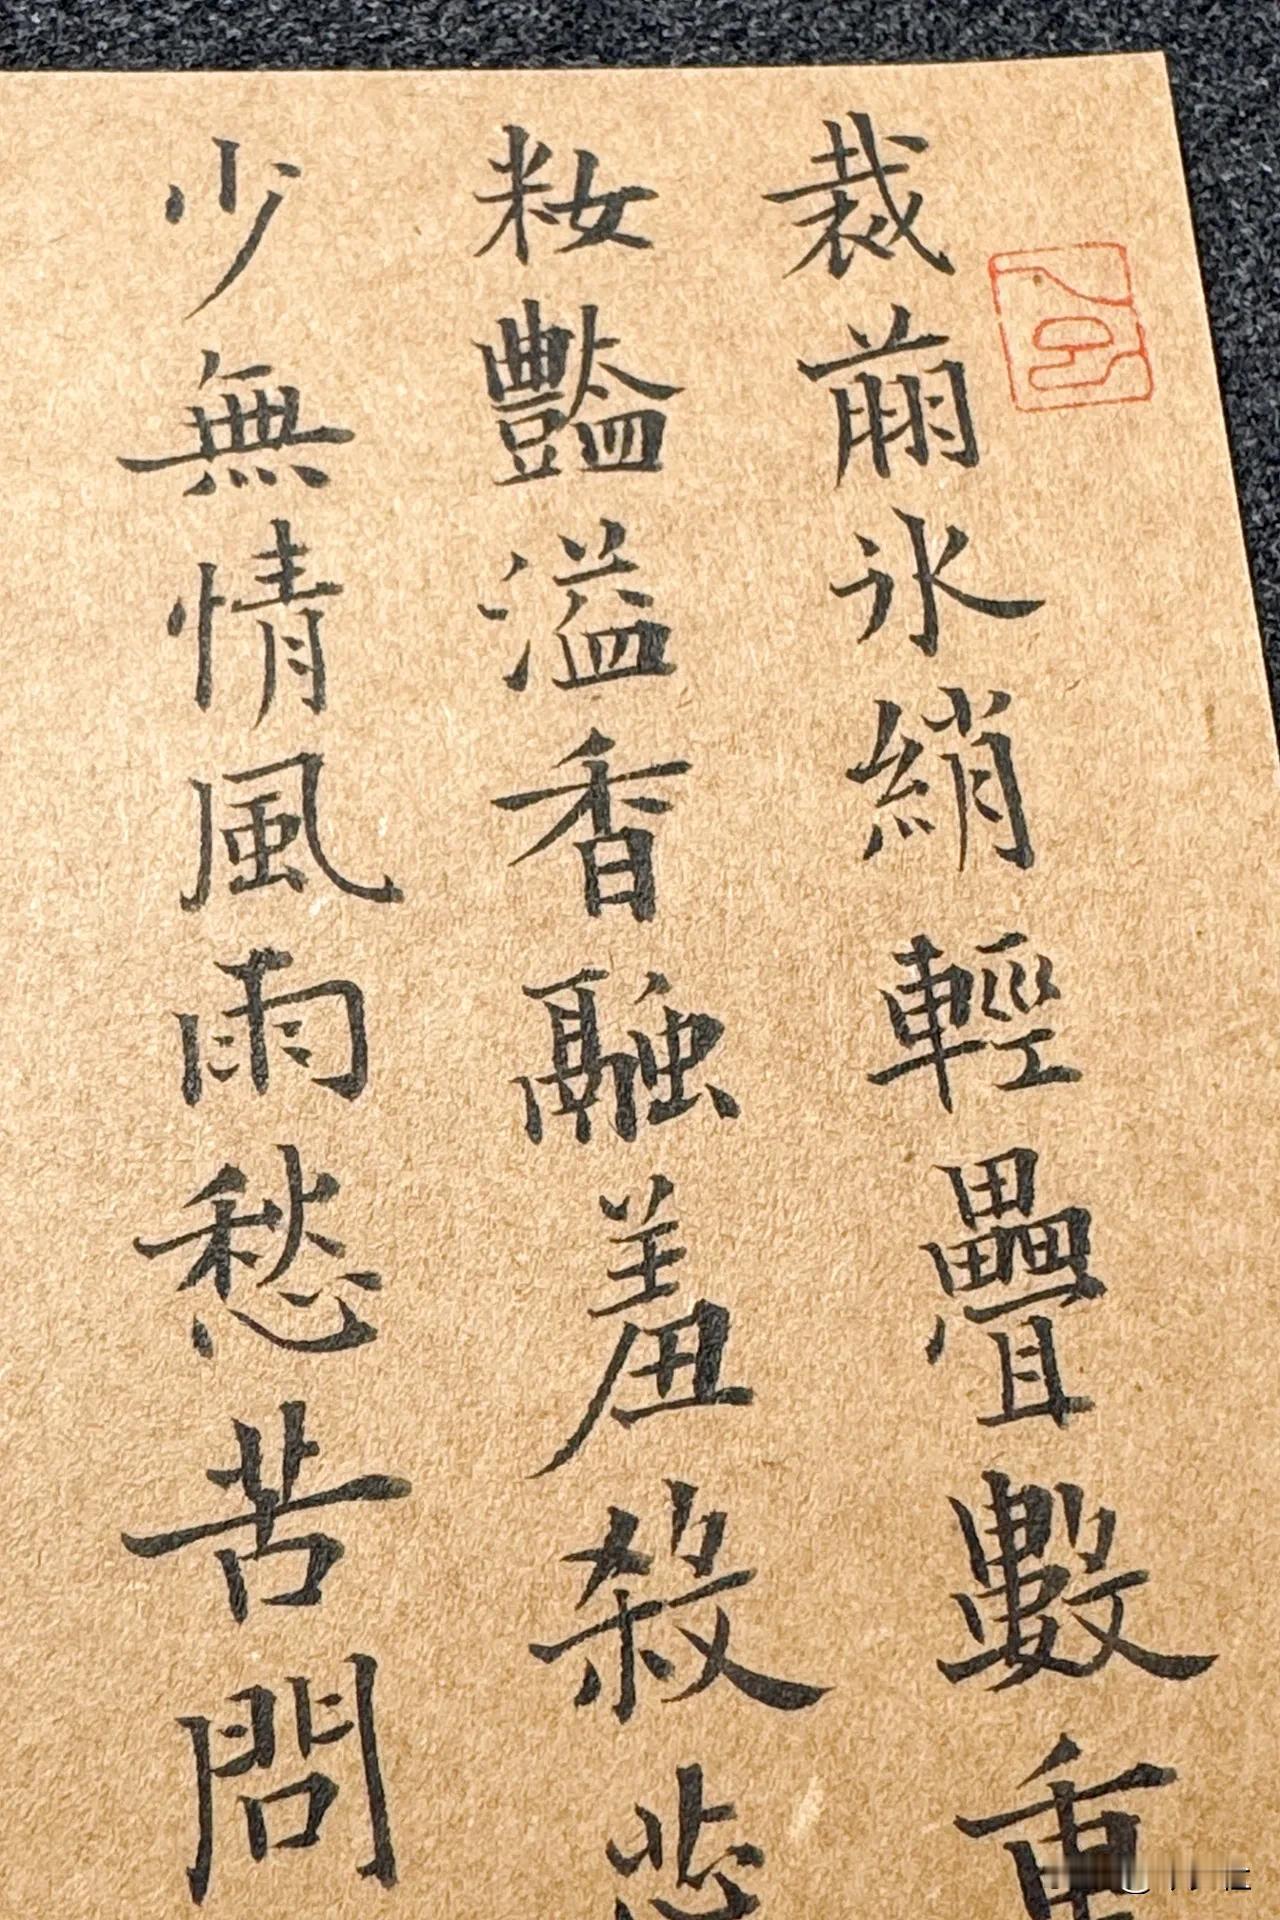 裁翦冰綃輕疊數重
籹豔溢香融羞殺
少無情風雨愁苦問